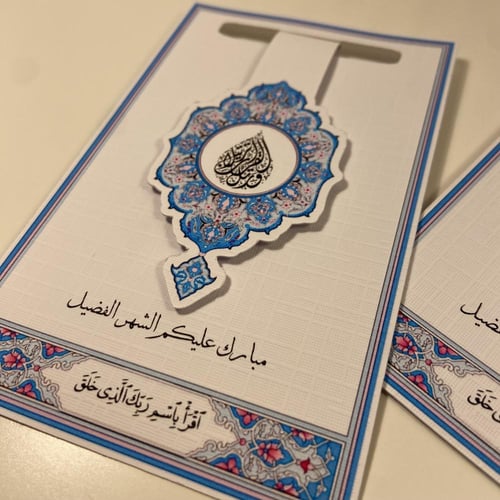 مبارك عليكم الشهر الفضيل
ٱقْرَأْ بِٱسْمِ رَبِّكَ ٱلَّذِى خَلَقَ
خَلَقَ